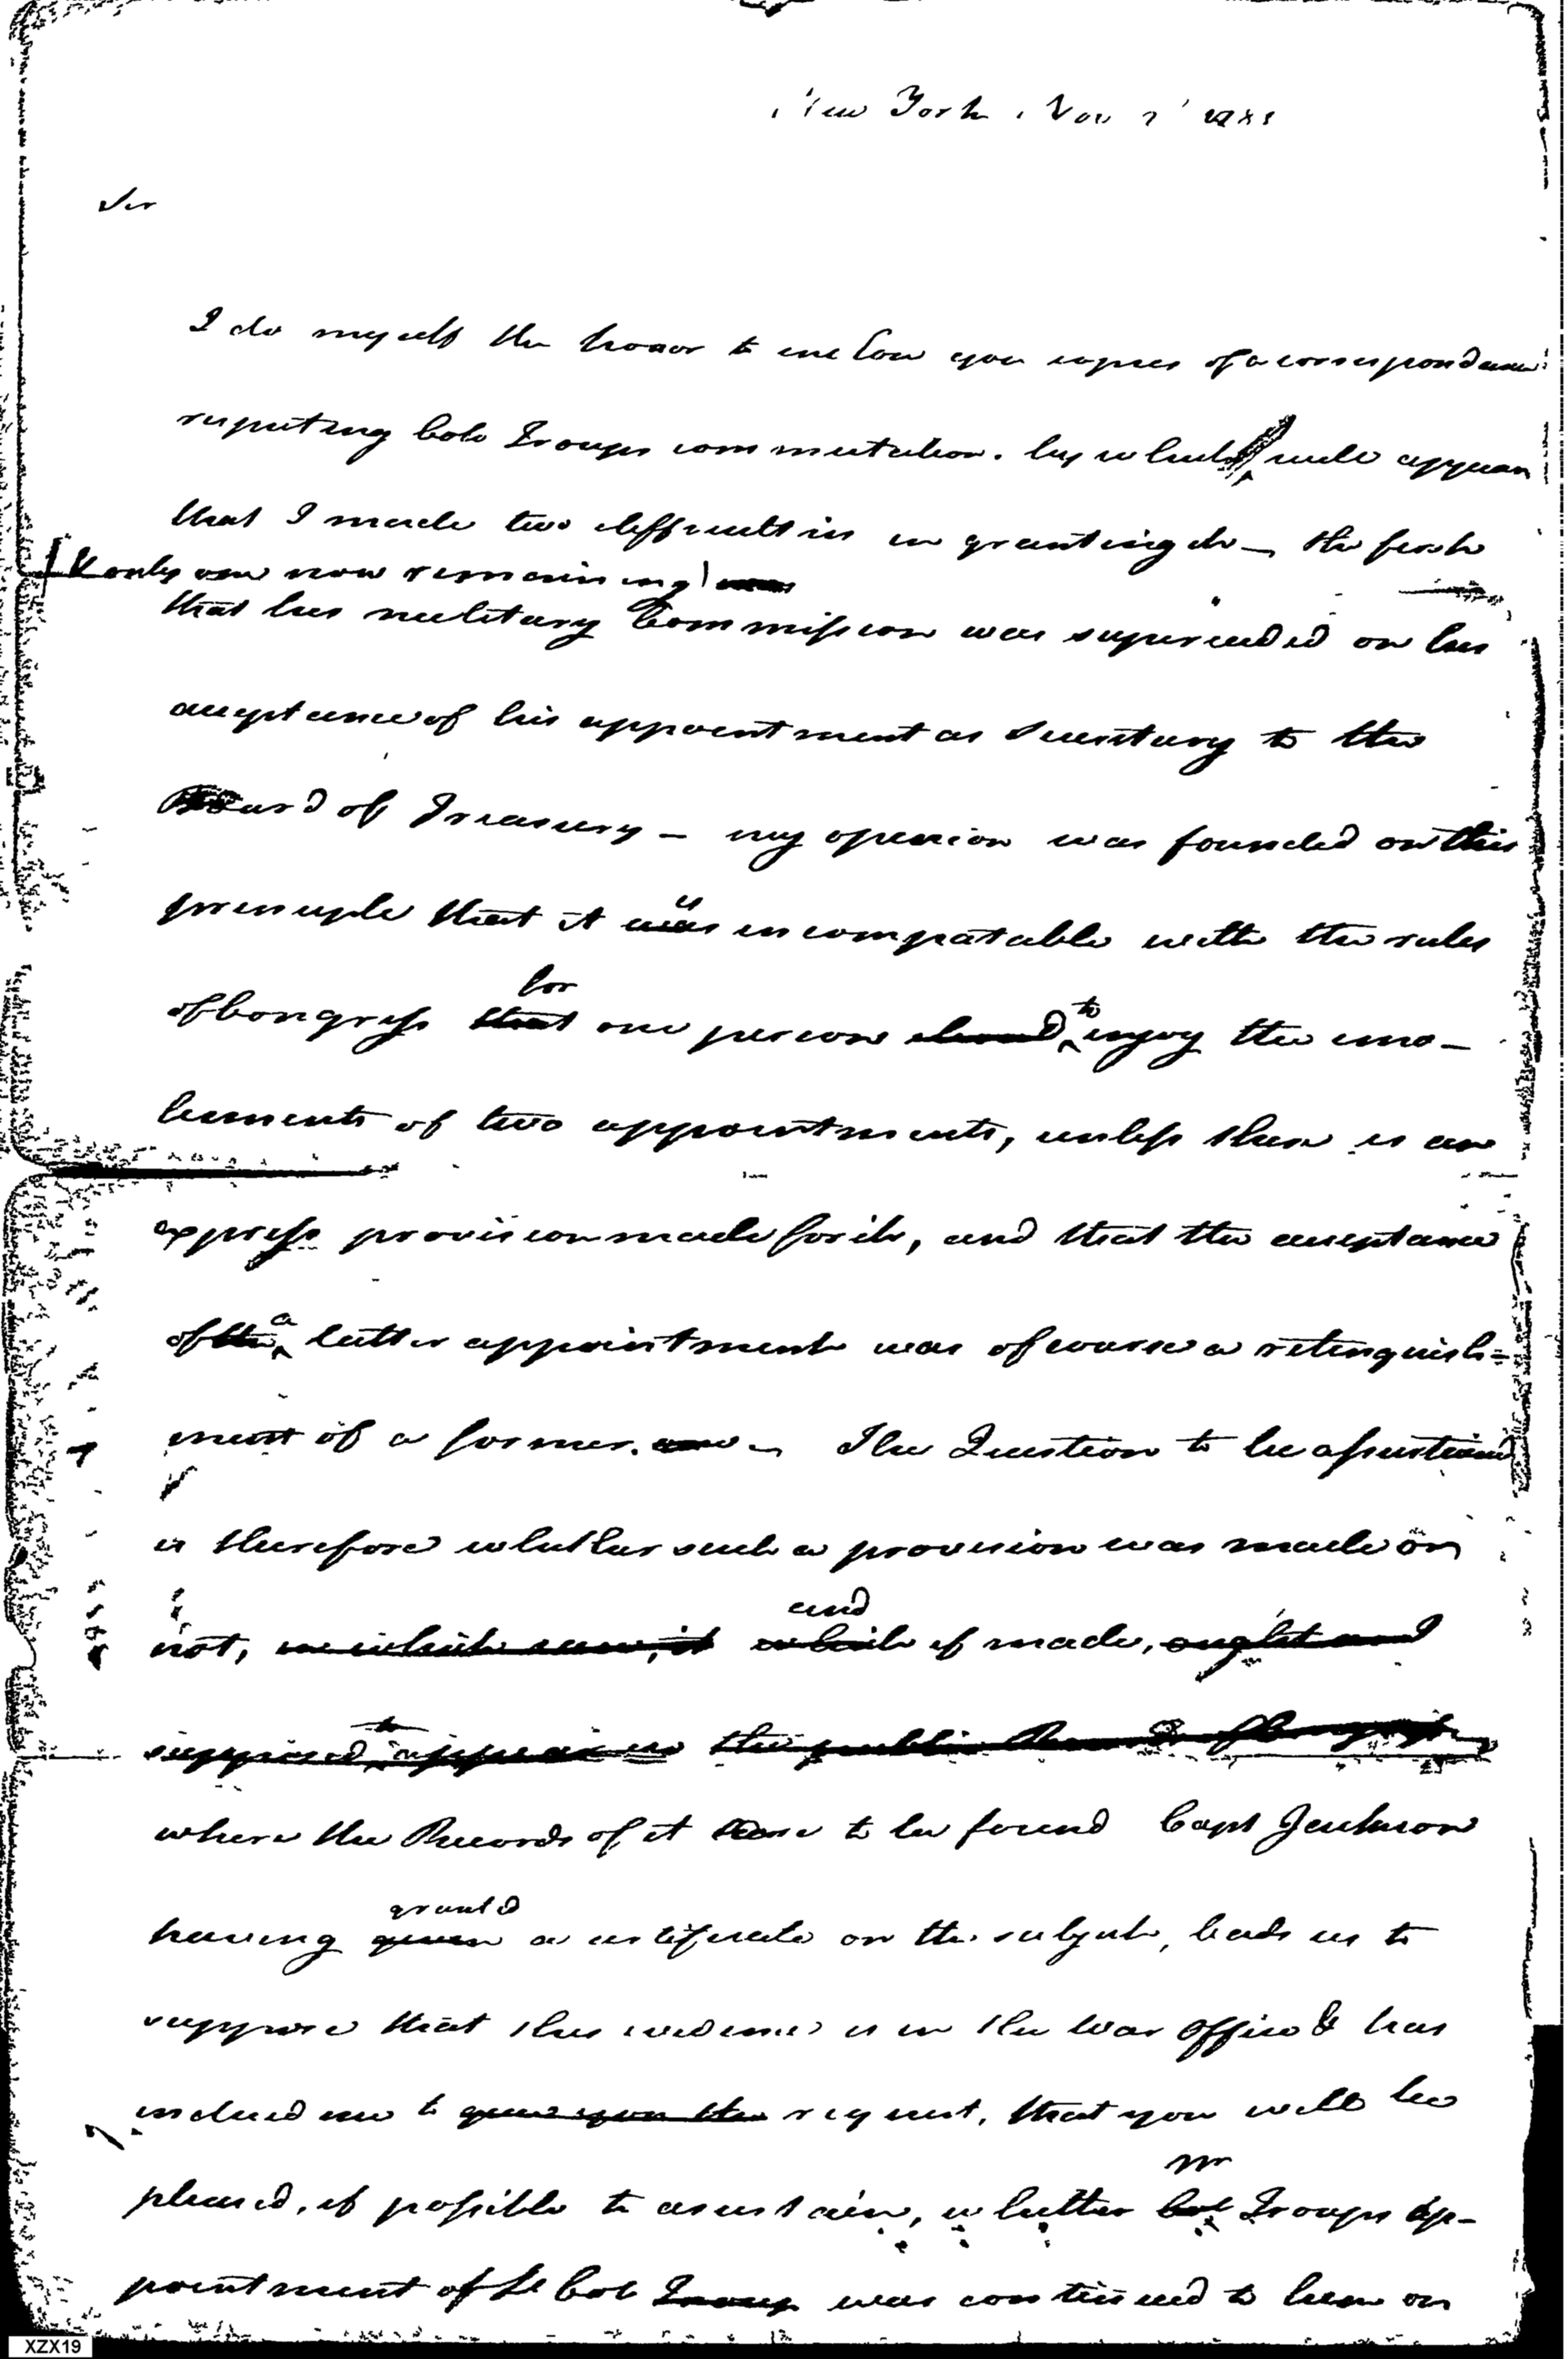 New York, Nov 1 1785
Sir
I do myself the honor to enclose you copies of a correspondence
respecting Cols Troups commutation. by which will appear
that I made two difficulties in granting it — the first
(& only one now remaining)
that his military Commission was superceded on his
acceptance of his appointment as Secretary to the
Board of Treasury — my opinion was founded on this
principle that it was incompatable with the rules
for
of Congress that one person to enjoy the emo-
luments of two appointments, unless there is an
express provision made for it, and that the acceptance
a
of the latter appointment was of course a relinquish=
ment of a former. The Question to be assertained
is therefore whether such a provision was made or
and
not, in which case, it which if made, ought and
to
supposed appear in the public
where the Records of it to be found Capt Jackson
granted
having given a certificate on the subject, leads us to
suppose that this evidence is in the War Office & has
induced me to give you the request, that you will be
Mr
pleased, if possible to ascertain, whether Col Troups ap-
pointment of Lt Col Troup was continued to him on
XZX19